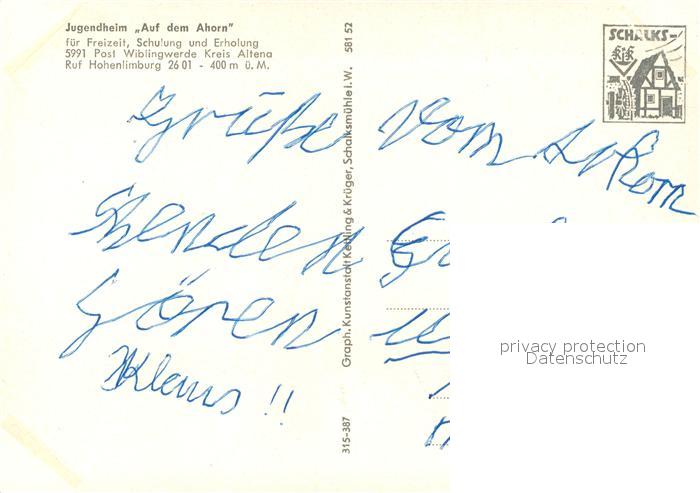 Jugendheim „Auf dem Ahorn"
für Freizeit, Schulung und Erholung
5991 Post Wiblingwerde Kreis Altena
Ruf Hohenlimburg 26 01 - 400 m ü. M.
SCHALKS-
KuK
Graph. Kunstanstalt Kettling & Krüger, Schalksmühle i. W. 581 52
315-387
Grüße vom Ahorn
senden
Gören
Klaus !!
privacy protection
Datenschutz